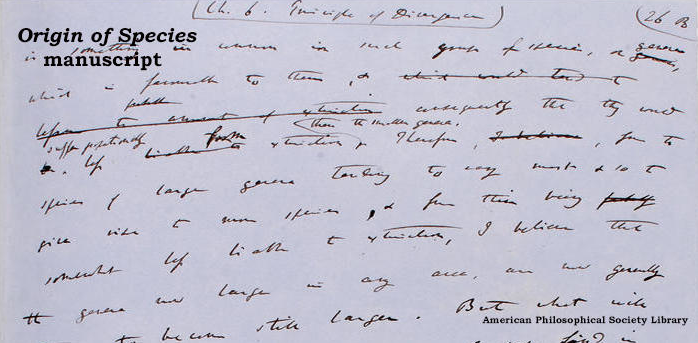 Ch. 6. Principle of Divergence
26 B
Origin of Species
manuscript
is something in common in such groups of species, or genera
genera,
which is favourable to them, & which would tend to
probably
before the amount of extinction consequently the they would
than the smaller genera.
suffer proportionally from
be less liable to extinction. Therefore, I believe, from the
species of larger genera tending to vary most & so to
give rise to more species, & from their being probably
somewhat less liable to extinction, I believe that
the genera now large in any area, are now generally
to become still larger. But what will
American Philosophical Society Library
in